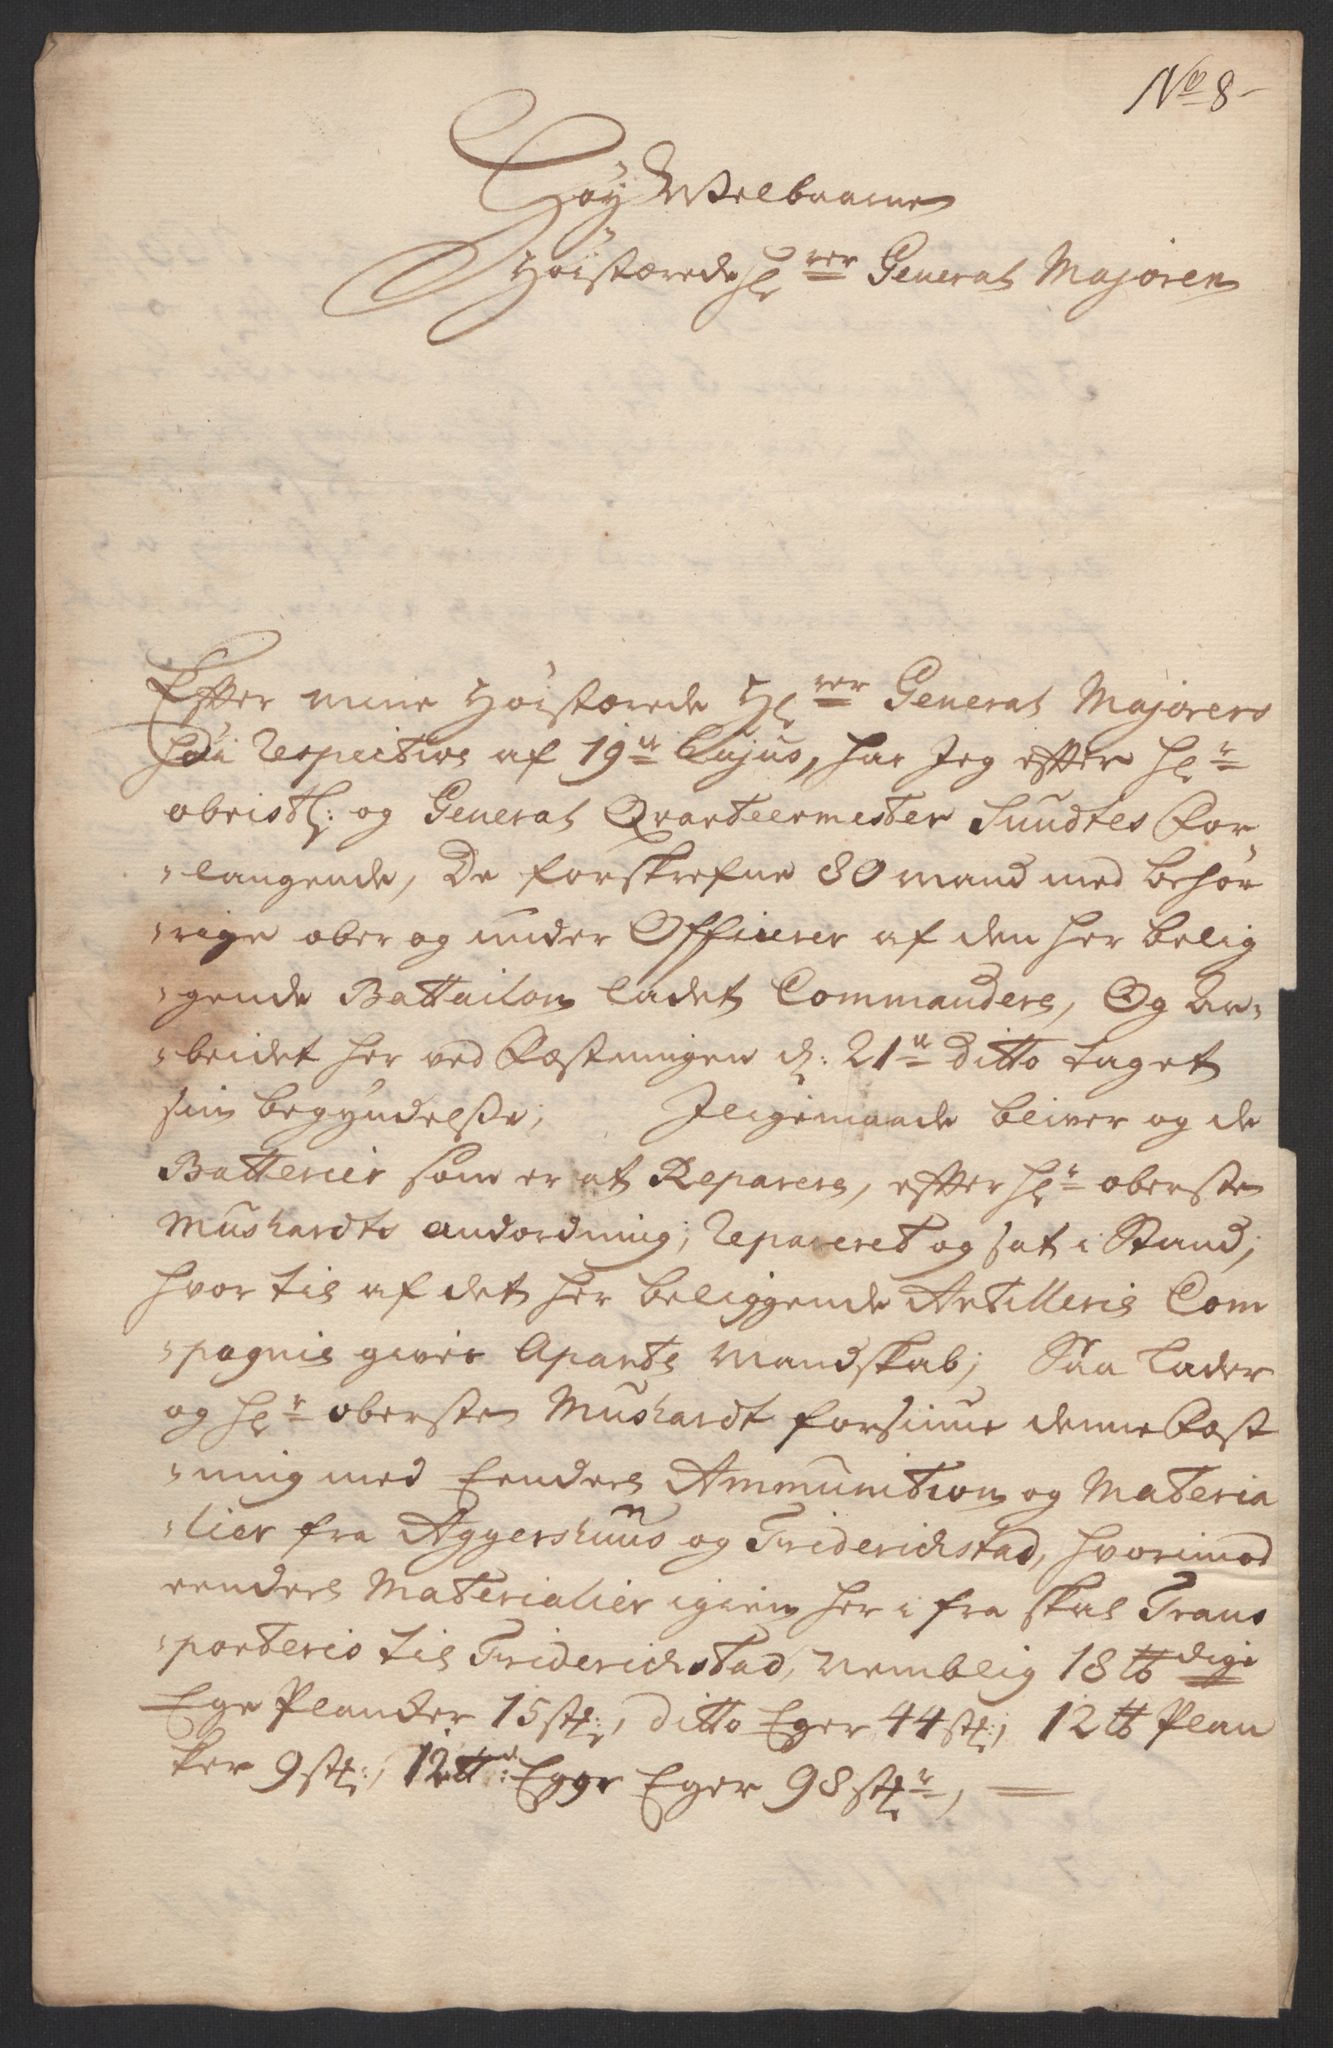 No 8
Høy Welbaarne
Høistærede Hr rer General Majoren
Effter mine Høistærede Hr rer General Majorers
respective af 19de hujus, har Jeg effter Hr
obristl: og General Qvarteermester Sundtes For
langende, De forskrefne 80 mand med behør
rige ober og under Officerer af den her belig
gende Battailon ladet Commandere, Og Ar
beidet her ved Fæstningen d: 21de ditto taget
sin begyndelse; Jligemaade bliver og de
Batterier som er at Reparere, effter Hr obersten
Mushardts andordning, repareret og sat i Stand;
hvor til af det her beliggende Artillerie Com
pagnie gives Aparte Mandskab; Saa lader
og Hr obersten Mushardt forsiune denne Fæst
ning med Eendeel Ammunition og Materia
lier fra Aggershuus og Friderichstad, hvorimod
eendeel Materialier igien her i fra skal Trans
porteris til Friderichstad, Nemblig 18 tt dige
Ege Plancker 15 stk:, ditto Eger 44 stk:, 12 tt Plan
ker 9 stk:, 12 tt d: Egge Eger 98 stkr,